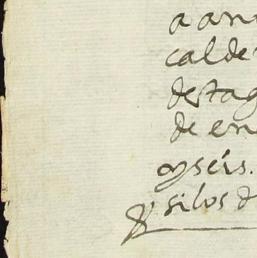 a an
calde
destag
de en
yseis.
silos d